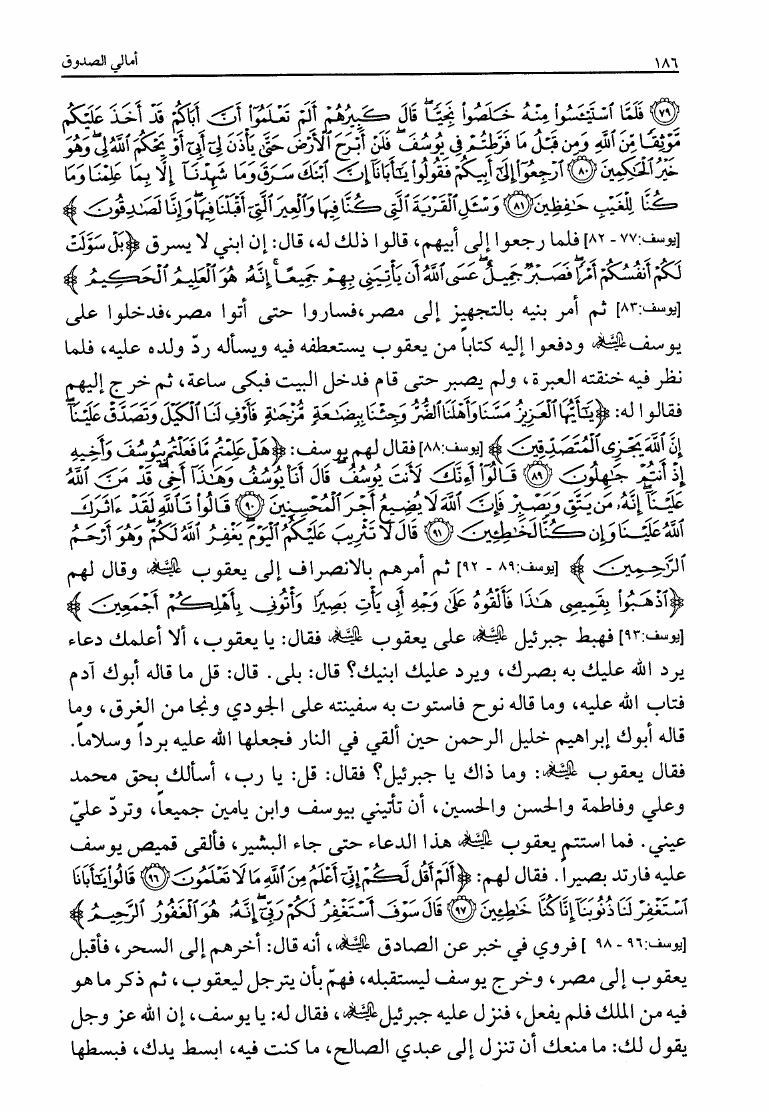 ١٨٦
أمالي الصدوق
﴿٧٩﴾ فَلَمَّا ٱسْتَيْـَٔسُوا۟ مِنْهُ خَلَصُوا۟ نَجِيًّا ۖ قَالَ كَبِيرُهُمْ أَلَمْ تَعْلَمُوٓا۟ أَنَّ أَبَاكُمْ قَدْ أَخَذَ عَلَيْكُم
مَّوْثِقًا مِّنَ ٱللَّهِ وَمِن قَبْلُ مَا فَرَّطتُمْ فِى يُوسُفَ ۖ فَلَنْ أَبْرَحَ ٱلْأَرْضَ حَتَّىٰ يَأْذَنَ لِىٓ أَبِىٓ أَوْ يَحْكُمَ ٱللَّهُ لِى ۖ وَهُوَ
خَيْرُ ٱلْحَـٰكِمِينَ ﴿٨٠﴾ ٱرْجِعُوٓا۟ إِلَىٰٓ أَبِيكُمْ فَقُولُوا۟ يَـٰٓأَبَانَآ إِنَّ ٱبْنَكَ سَرَقَ وَمَا شَهِدْنَآ إِلَّا بِمَا عَلِمْنَا وَمَا
كُنَّا لِلْغَيْبِ حَـٰفِظِينَ ﴿٨١﴾ وَسْـَٔلِ ٱلْقَرْيَةَ ٱلَّتِى كُنَّا فِيهَا وَٱلْعِيرَ ٱلَّتِىٓ أَقْبَلْنَا فِيهَا ۖ وَإِنَّا لَصَـٰدِقُونَ﴾
[يوسف:٧٧ - ٨٢] فلما رجعوا إلى أبيهم، قالوا ذلك له، قال: إن ابني لا يسرق ﴿بَلْ سَوَّلَتْ
لَكُمْ أَنفُسُكُمْ أَمْرًا ۖ فَصَبْرٌ جَمِيلٌ ۖ عَسَى ٱللَّهُ أَن يَأْتِيَنِى بِهِمْ جَمِيعًا ۚ إِنَّهُۥ هُوَ ٱلْعَلِيمُ ٱلْحَكِيمُ﴾
[يوسف:٨٣] ثم أمر بنيه بالتجهيز إلى مصر،فساروا حتى أتوا مصر،فدخلوا على
يوسف عليه السلام ودفعوا إليه كتاباً من يعقوب يستعطفه فيه ويسأله ردّ ولده عليه، فلما
نظر فيه خنقته العبرة، ولم يصبر حتى قام فدخل البيت فبكى ساعة، ثم خرج إليهم
فقالوا له: ﴿يَـٰٓأَيُّهَا ٱلْعَزِيزُ مَسَّنَا وَأَهْلَنَا ٱلضُّرُّ وَجِئْنَا بِبِضَـٰعَةٍ مُّزْجَىٰةٍ فَأَوْفِ لَنَا ٱلْكَيْلَ وَتَصَدَّقْ عَلَيْنَآ ۖ
إِنَّ ٱللَّهَ يَجْزِى ٱلْمُتَصَدِّقِينَ﴾ [يوسف:٨٨] فقال لهم يوسف: ﴿هَلْ عَلِمْتُم مَّا فَعَلْتُم بِيُوسُفَ وَأَخِيهِ
إِذْ أَنتُمْ جَـٰهِلُونَ ﴿٨٩﴾ قَالُوٓا۟ أَءِنَّكَ لَأَنتَ يُوسُفُ ۖ قَالَ أَنَا۠ يُوسُفُ وَهَـٰذَآ أَخِى ۖ قَدْ مَنَّ ٱللَّهُ
عَلَيْنَآ ۖ إِنَّهُۥ مَن يَتَّقِ وَيَصْبِرْ فَإِنَّ ٱللَّهَ لَا يُضِيعُ أَجْرَ ٱلْمُحْسِنِينَ ﴿٩٠﴾ قَالُوا۟ تَٱللَّهِ لَقَدْ ءَاثَرَكَ
ٱللَّهُ عَلَيْنَا وَإِن كُنَّا لَخَـٰطِـِٔينَ ﴿٩١﴾ قَالَ لَا تَثْرِيبَ عَلَيْكُمُ ٱلْيَوْمَ ۖ يَغْفِرُ ٱللَّهُ لَكُمْ ۖ وَهُوَ أَرْحَمُ
ٱلرَّٰحِمِينَ﴾ [يوسف:٨٩ - ٩٢] ثم أمرهم بالانصراف إلى يعقوب عليه السلام وقال لهم
﴿ٱذْهَبُوا۟ بِقَمِيصِى هَـٰذَا فَأَلْقُوهُ عَلَىٰ وَجْهِ أَبِى يَأْتِ بَصِيرًا وَأْتُونِى بِأَهْلِكُمْ أَجْمَعِينَ﴾
[يوسف:٩٣] فهبط جبرئيل عليه السلام على يعقوب عليه السلام فقال: يا يعقوب، ألا أعلمك دعاء
يرد الله عليك به بصرك، ويرد عليك ابنيك؟ قال: بلى. قال: قل ما قاله أبوك آدم
فتاب الله عليه، وما قاله نوح فاستوت به سفينته على الجودي ونجا من الغرق، وما
قاله أبوك إبراهيم خليل الرحمن حين ألقي في النار فجعلها الله عليه برداً وسلاماً.
فقال يعقوب عليه السلام: وما ذاك يا جبرئيل؟ فقال: قل: يا رب، أسألك بحق محمد
وعلي وفاطمة والحسن والحسين، أن تأتيني بيوسف وابن يامين جميعاً، وتردّ عليّ
عيني. فما استتم يعقوب عليه السلام هذا الدعاء حتى جاء البشير، فألقى قميص يوسف
عليه فارتد بصيراً. فقال لهم: ﴿أَلَمْ أَقُل لَّكُمْ إِنِّىٓ أَعْلَمُ مِنَ ٱللَّهِ مَا لَا تَعْلَمُونَ ﴿٩٦﴾ قَالُوا۟ يَـٰٓأَبَانَا
ٱسْتَغْفِرْ لَنَا ذُنُوبَنَآ إِنَّا كُنَّا خَـٰطِـِٔينَ ﴿٩٧﴾ قَالَ سَوْفَ أَسْتَغْفِرُ لَكُمْ رَبِّىٓ ۖ إِنَّهُۥ هُوَ ٱلْغَفُورُ ٱلرَّحِيمُ﴾
[يوسف:٩٦ - ٩٨ ] فروي في خبر عن الصادق عليه السلام، أنه قال: أخرهم إلى السحر، فأقبل
يعقوب إلى مصر، وخرج يوسف ليستقبله، فهمّ بأن يترجل ليعقوب، ثم ذكر ما هو
فيه من الملك فلم يفعل، فنزل عليه جبرئيل عليه السلام، فقال له: يا يوسف، إن الله عز وجل
يقول لك: ما منعك أن تنزل إلى عبدي الصالح، ما كنت فيه، ابسط يدك، فبسطها